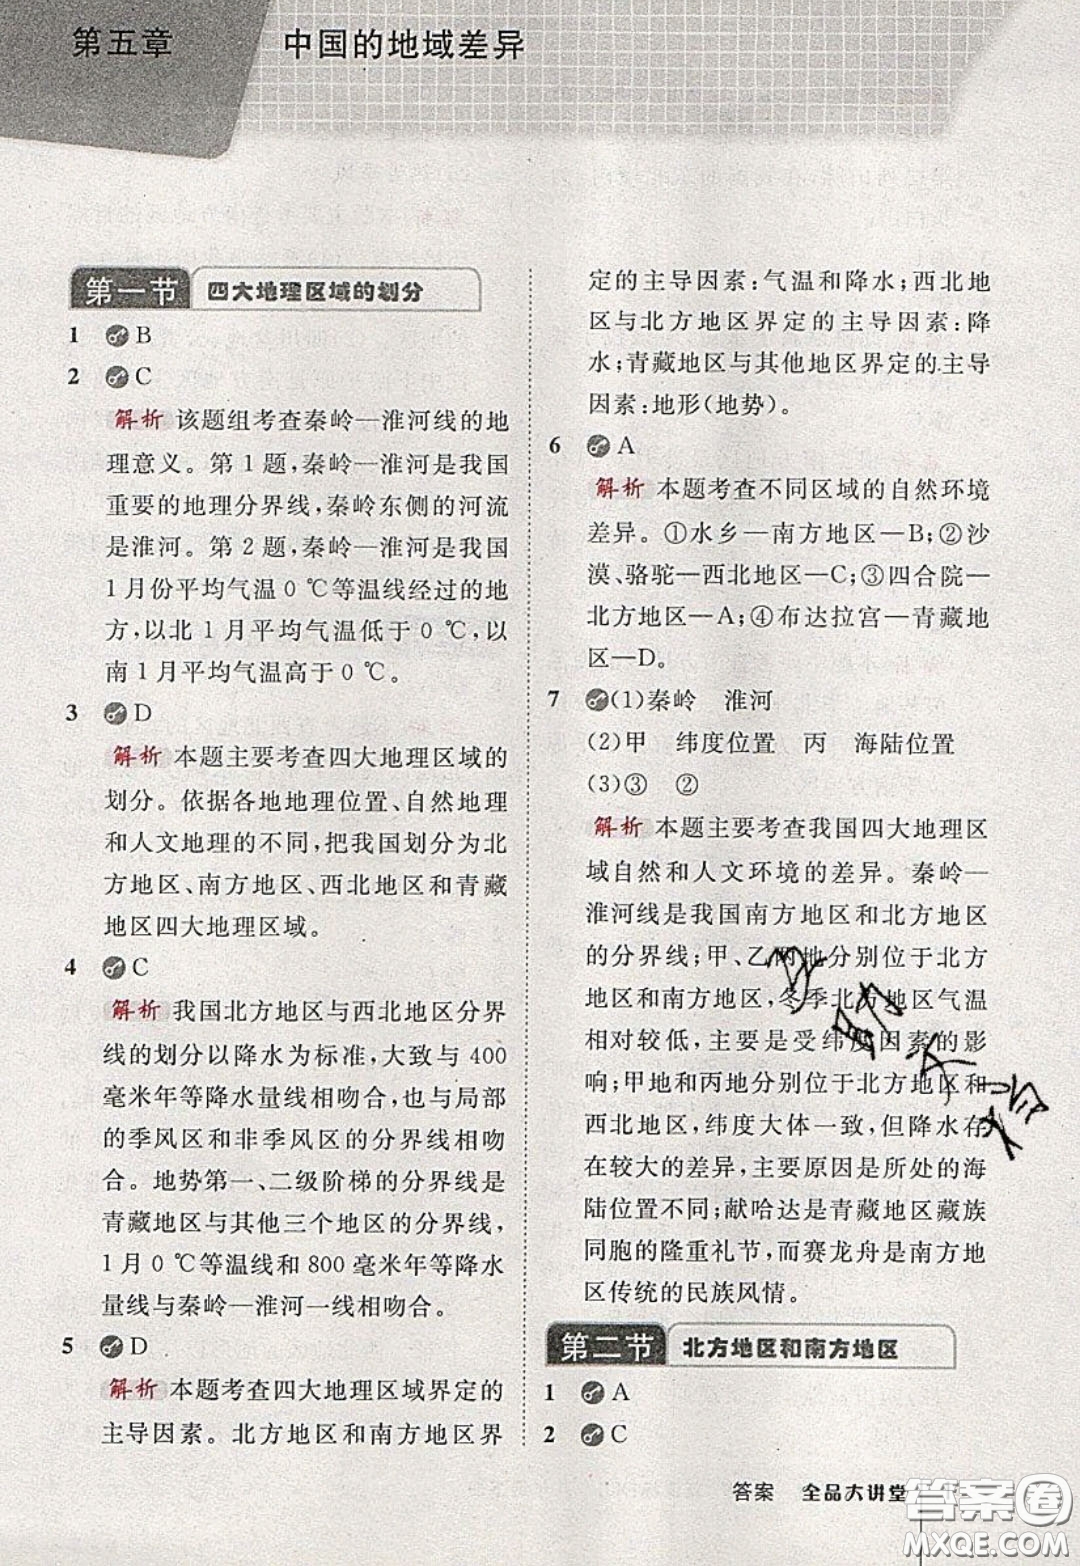 第五章 中国的地域差异
第一节 四大地理区域的划分
1 B
2 C
解析 该题组考查秦岭—淮河线的地
理意义。第1题,秦岭—淮河是我国
重要的地理分界线,秦岭东侧的河流
是淮河。第2题,秦岭—淮河是我国
1月份平均气温0 ℃等温线经过的地
方,以北1月平均气温低于0 ℃,以
南1月平均气温高于0 ℃。
3 D
解析 本题主要考查四大地理区域的
划分。依据各地地理位置、自然地理
和人文地理的不同,把我国划分为北
方地区、南方地区、西北地区和青藏
地区四大地理区域。
4 C
解析 我国北方地区与西北地区分界
线的划分以降水为标准,大致与400
毫米年等降水量线相吻合,也与局部
的季风区和非季风区的分界线相吻
合。地势第一、二级阶梯的分界线是
青藏地区与其他三个地区的分界线,
1月0 ℃等温线和800毫米年等降水
量线与秦岭—淮河一线相吻合。
5 D
解析 本题考查四大地理区域界定的
主导因素。北方地区和南方地区界
定的主导因素:气温和降水;西北地
区与北方地区界定的主导因素:降
水;青藏地区与其他地区界定的主导
因素:地形(地势)。
6 A
解析 本题考查不同区域的自然环境
差异。①水乡—南方地区—B;②沙
漠、骆驼—西北地区—C;③四合院—
北方地区—A;④布达拉宫—青藏地
区—D。
7 (1)秦岭 淮河
(2)甲 纬度位置 丙 海陆位置
(3)③ ②
解析 本题主要考查我国四大地理区
域自然和人文环境的差异。秦岭—
淮河线是我国南方地区和北方地区
的分界线;甲、乙两地分别位于北方
地区和南方地区,冬季北方地区气温
相对较低,主要是受纬度因素的影
响;甲地和丙地分别位于北方地区和
西北地区,纬度大体一致,但降水存
在较大的差异,主要原因是所处的海
陆位置不同;献哈达是青藏地区藏族
同胞的隆重礼节,而赛龙舟是南方地
区传统的民族风情。
第二节 北方地区和南方地区
1 A
2 C
答案 全品大讲堂
答案圈
MXQE.COM